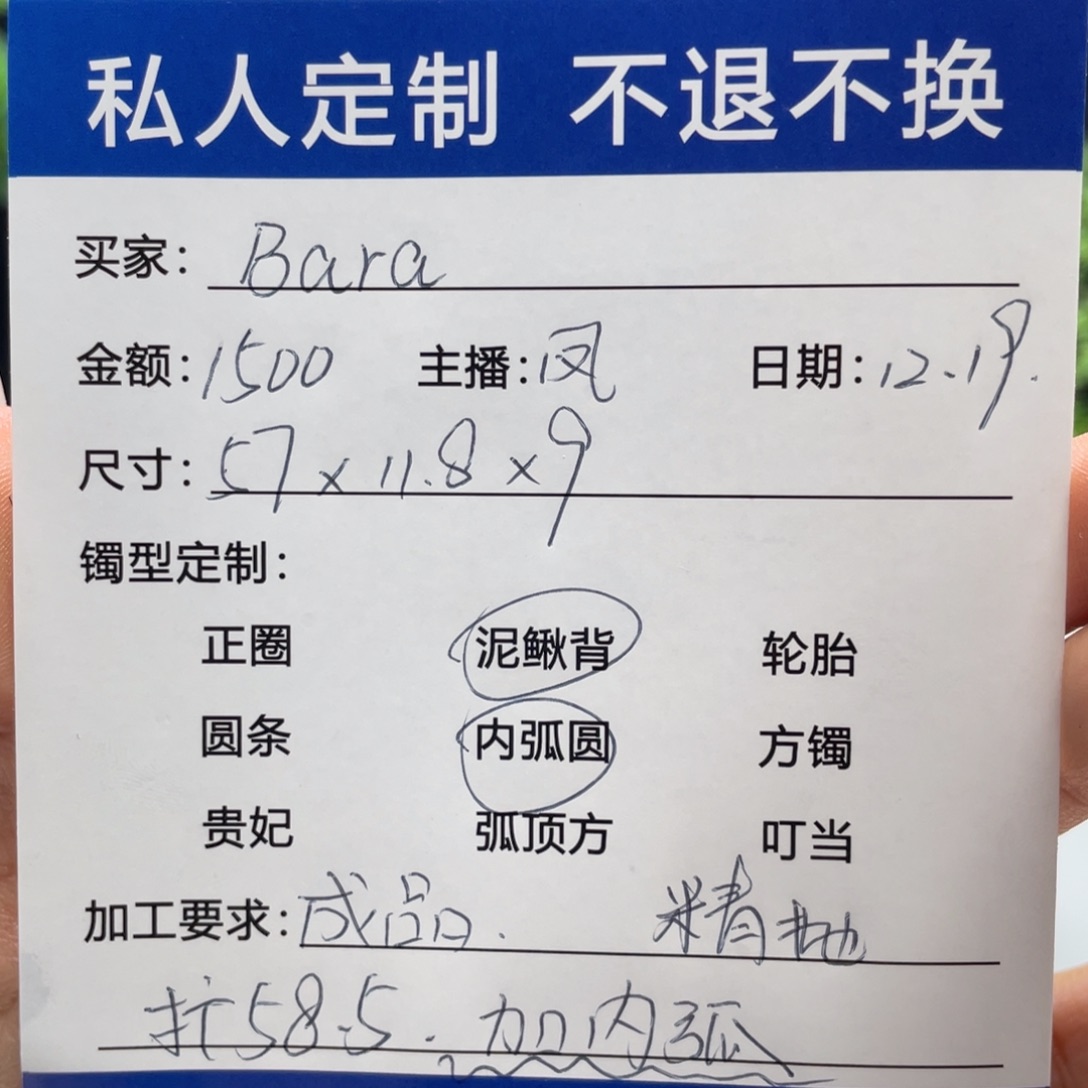 私人定制 不退不换
买家：Bara
金额：1500 主播：凤 日期：12.19.
尺寸：57×11.8×9
镯型定制：
正圈 泥鳅背 轮胎
圆条 内弧圆 方镯
贵妃 弧顶方 叮当
加工要求：成品. 精抛
扩58.5. 加内弧